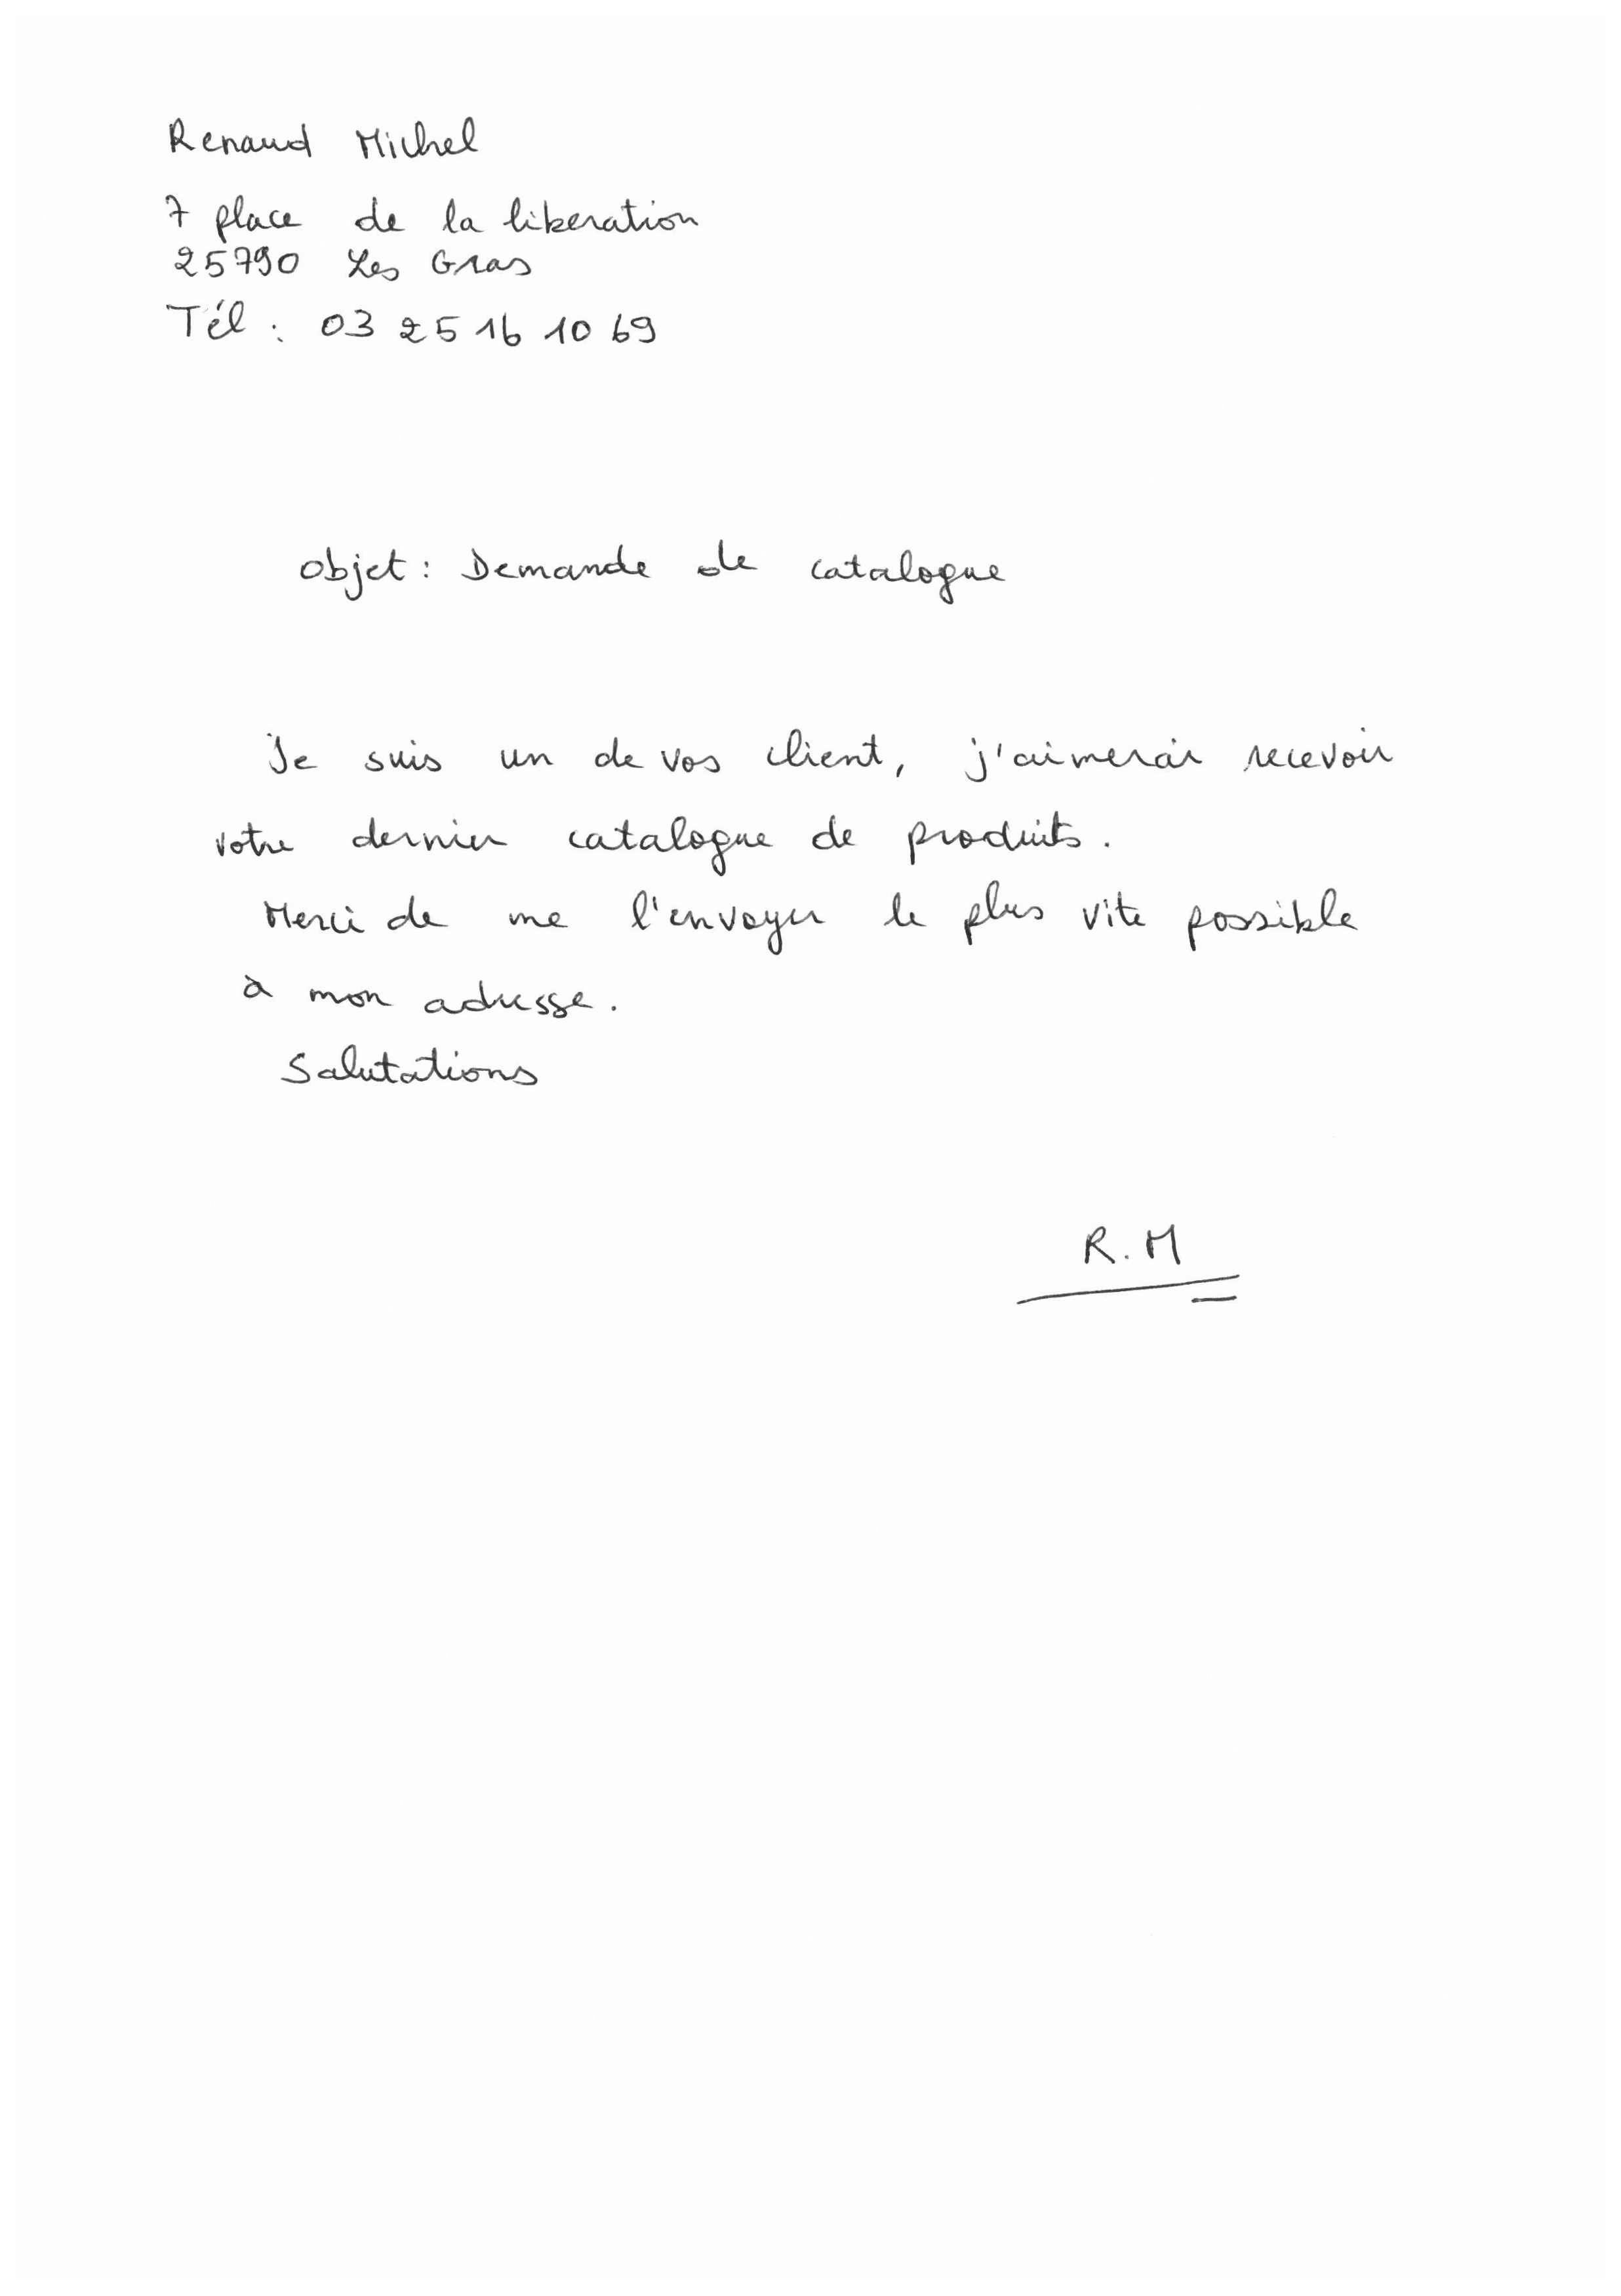 Renaud Michel
7 place de la liberation
25790 Les Gras
Tél : 03 25 16 10 69
Objet : Demande de catalogue
Je suis un de vos client, j'aimerais recevoir
votre dernier catalogue de produits.
Merci de me l'envoyer le plus vite possible
à mon adresse.
Salutations
R.M